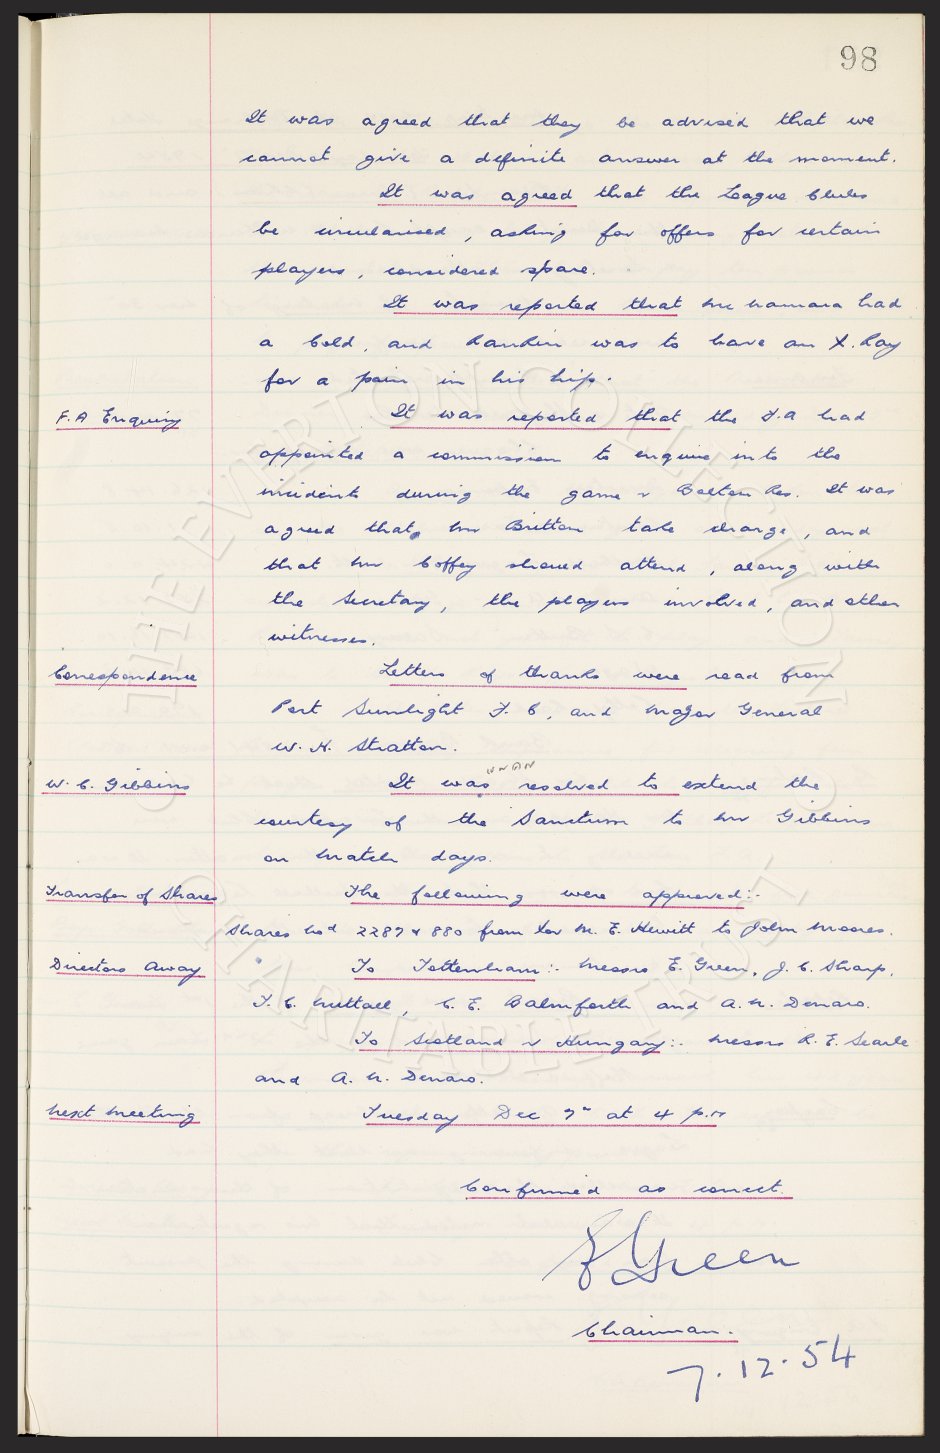 98
It was agreed that they be advised that we
cannot give a definite answer at the moment.
It was agreed that the League Clubs
be circularised, asking for offers for certain
players, considered spare.
It was reported that Mc Namara had
a Cold, and Rankin was to have an X. Ray
for a pain in his hip.
F.A Enquiry
It was reported that the F.A had
appointed a commission to enquire into the
incidents during the game v Bolton Res. It was
agreed that Mr Britton take charge, and
that Mr Coffey should attend, along with
the Secretary, the players involved, and other
witnesses.
Correspondence
Letters of thanks were read from
Port Sunlight F. C, and Major General
W. H. Stratton.
W. C. Gibbins
unan
It was resolved to extend the
courtesy of the Sanctum to Mr Gibbins
on Match days.
Transfer of Shares
The following were approved:-
Shares Nos 2287 & 880 from Exor M. E. Hewitt to John Moores.
Directors Away
To Tottenham:- Messrs E. Green, J. C. Sharp,
F. C. Nuttall, C. E. Balmforth and A. N. Denaro.
To Scotland v Hungary:- Messrs R. E. Searle
and A. N. Denaro.
Next Meeting
Tuesday Dec 7th at 4 p.m
Confirmed as correct.
E Green
Chairman.
7.12.54
THE EVERTON COLLECTION
CHARITABLE TRUST